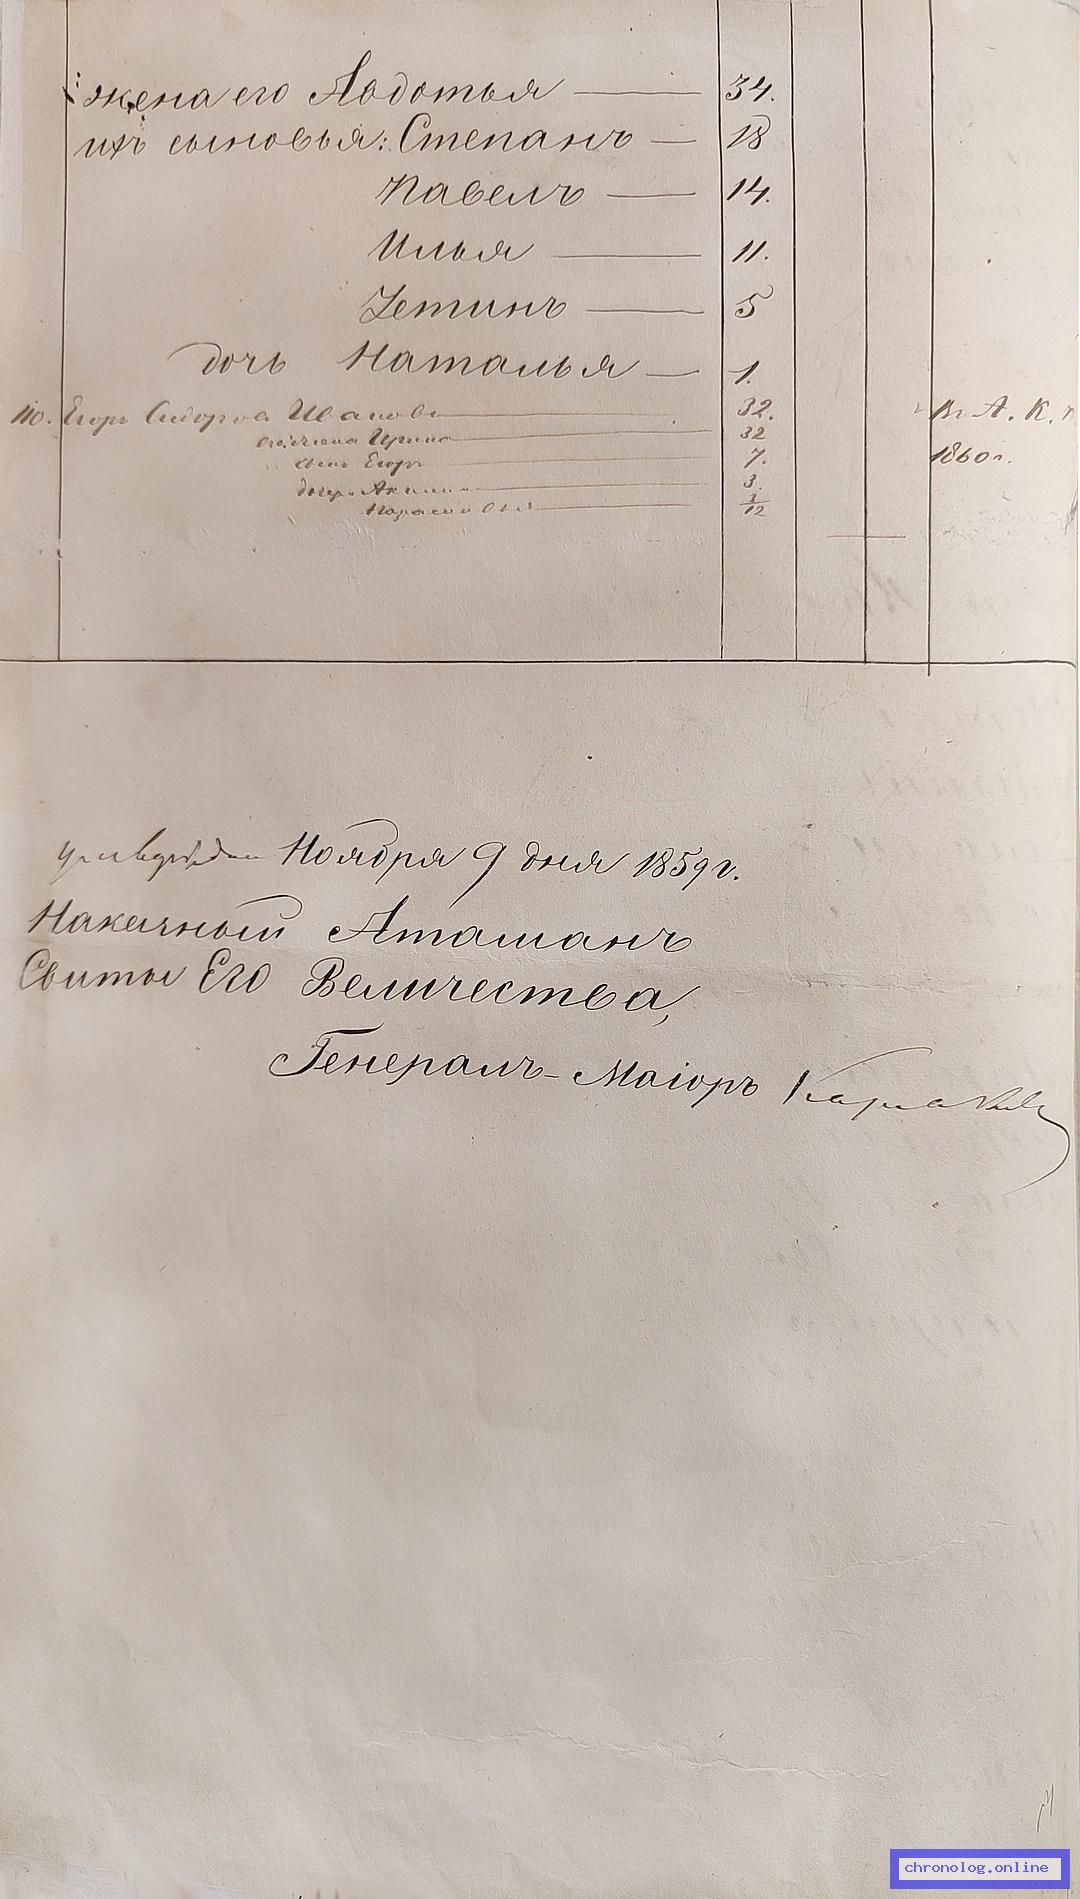 жена его Авдотья 34.
ихъ сыновья: Степанъ 18
Павелъ 14.
Илья 11.
Устинъ 5
дочь Наталья 1.
110. Егоръ Сидоровъ Ивановъ 32. В. А. К.
его жена Ирина 32
сынъ Егоръ 7. 1860 г.
дочери 3.
Парасковья 3/12
Ноября 9 дня 1859 г.
Наказный Атаманъ
Свиты Его Величества,
Генералъ-Маіоръ
chronolog.online